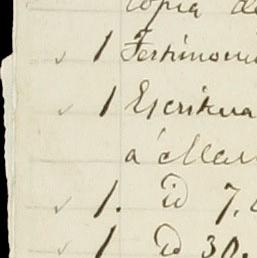 copia de
✓ 1 Testimoni
✓ 1 Escritura
á
✓ 1. id 7.
✓ 1 id 30.